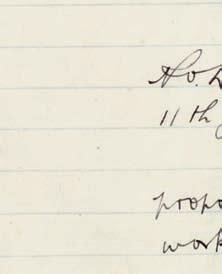 11th
propo
work